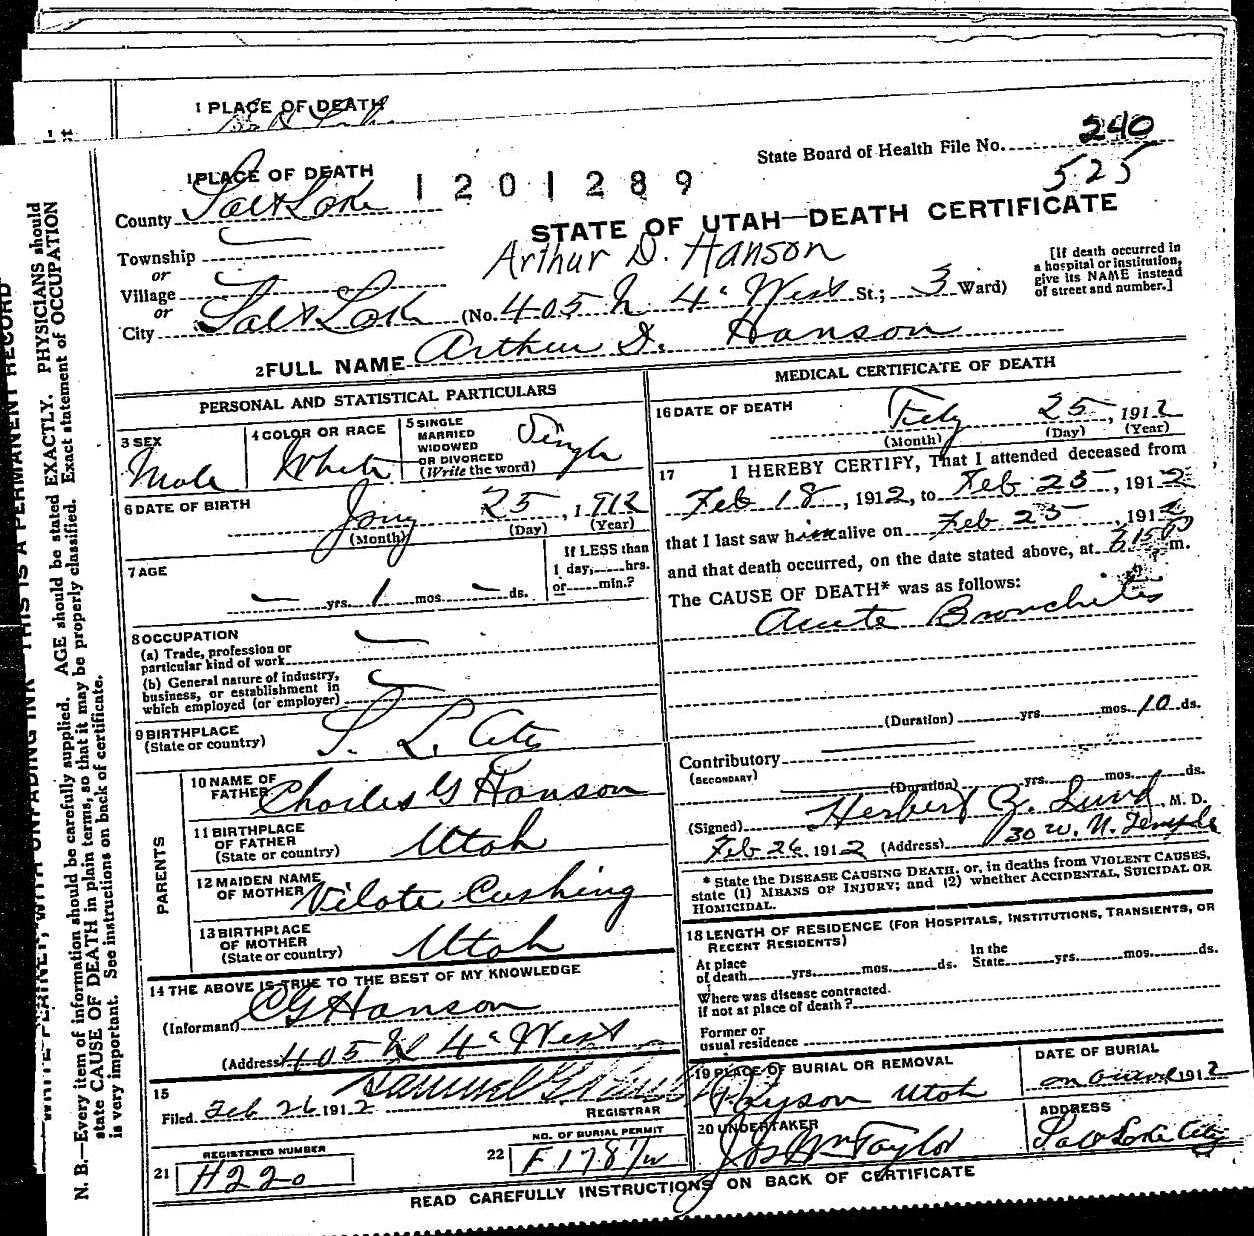 1 PLACE OF DEATH
State Board of Health File No. 240
525
1 PLACE OF DEATH
1201289
County Salt Lake
STATE OF UTAH—DEATH CERTIFICATE
Township
Arthur D. Hanson
[If death occurred in a hospital or institution, give its NAME instead of street and number.]
or
Village
or
City Salt Lake (No. 405 N 4" West St.; 3 Ward)
2 FULL NAME Arthur D. Hanson
PERSONAL AND STATISTICAL PARTICULARS
3 SEX Male
4 COLOR OR RACE White
5 SINGLE MARRIED WIDOWED OR DIVORCED (Write the word) Single
6 DATE OF BIRTH
Jany 25, 1912
(Month) (Day) (Year)
7 AGE
— yrs. 1 mos. — ds.
If LESS than 1 day, hrs. or min.?
8 OCCUPATION
(a) Trade, profession or particular kind of work
(b) General nature of industry, business, or establishment in which employed (or employer)
9 BIRTHPLACE
(State or country) S. L. City
PARENTS
10 NAME OF FATHER Charles G Hanson
11 BIRTHPLACE OF FATHER (State or country) Utah
12 MAIDEN NAME OF MOTHER Vilate Cushing
13 BIRTHPLACE OF MOTHER (State or country) Utah
14 THE ABOVE IS TRUE TO THE BEST OF MY KNOWLEDGE
(Informant) C G Hanson
(Address) 405 N 4" West
15
Filed Feb 26 1912
REGISTRAR
21 REGISTERED NUMBER H220
22 NO. OF BURIAL PERMIT
MEDICAL CERTIFICATE OF DEATH
16 DATE OF DEATH
Feby 25, 1912
(Month) (Day) (Year)
17 I HEREBY CERTIFY, That I attended deceased from
Feb 18, 1912, to Feb 25, 1912
that I last saw him alive on Feb 25, 1912
and that death occurred, on the date stated above, at m.
The CAUSE OF DEATH* was as follows:
Acute Bronchitis
(Duration) yrs. mos. 10 ds.
Contributory
(SECONDARY)
(Duration) yrs. mos. ds.
(Signed) Herbert Z. Lund M. D.
Feb 26, 1912 (Address) 30 W. N. Temple
* State the DISEASE CAUSING DEATH, or, in deaths from VIOLENT CAUSES,
state (1) MEANS OF INJURY; and (2) whether ACCIDENTAL, SUICIDAL OR
HOMICIDAL.
18 LENGTH OF RESIDENCE (FOR HOSPITALS, INSTITUTIONS, TRANSIENTS, OR
RECENT RESIDENTS)
At place of death yrs. mos. ds. In the State yrs. mos. ds.
Where was disease contracted.
if not at place of death?
Former or
usual residence
19 PLACE OF BURIAL OR REMOVAL
Payson Utah
DATE OF BURIAL
1912
20 UNDERTAKER
Jos Wm Taylor
ADDRESS
Salt Lake City
READ CAREFULLY INSTRUCTIONS ON BACK OF CERTIFICATE
WRITE PLAINLY, WITH UNFADING INK—THIS IS A PERMANENT RECORD
N. B.—Every item of information should be carefully supplied. AGE should be stated EXACTLY. PHYSICIANS should
state CAUSE OF DEATH in plain terms, so that it may be properly classified. Exact statement of OCCUPATION
is very important. See instructions on back of certificate.